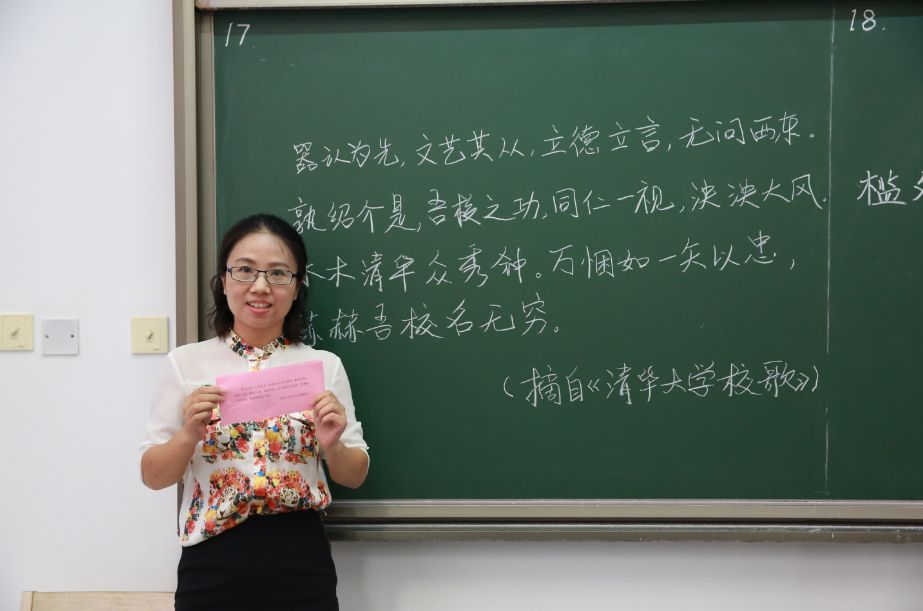 17
18.
器认为先,文艺其从,立德立言,无问西东。
孰绍介是,吾校之功,同仁一视,泱泱大风。
木清华众秀钟。万悃如一矢以忠,
赫吾校名无穷。
(摘自《清华大学校歌》)
槛